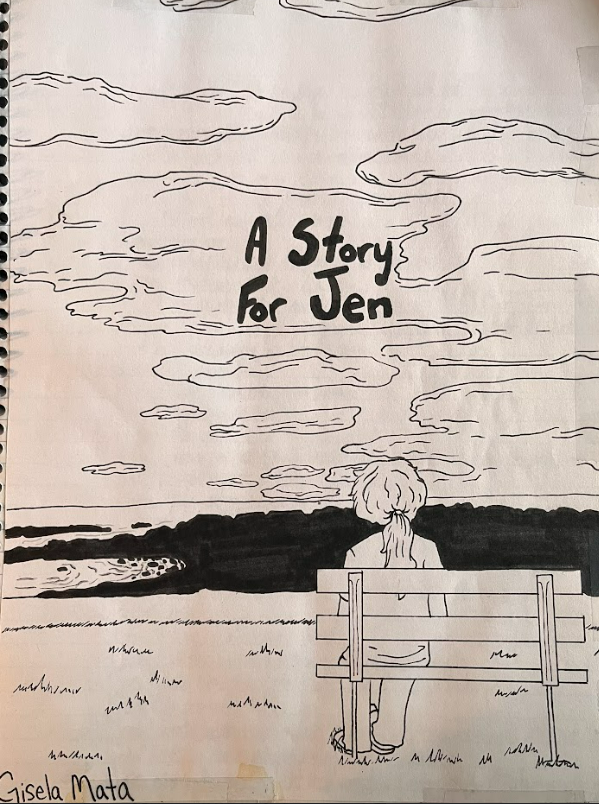 A Story
For Jen
Gisela Mata